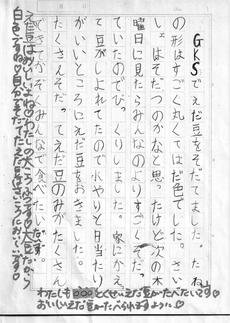 GKSでえだ豆をそだてました。たね
の形はすごく丸くてはだ色でした。さい
しょはそだつのかなと思ったけど次の木
曜日に見たらみんなのよりすごくそだっ
ていたのでびっくりしました。家にかえ
て豆がしょれてたので水やりと日当たり
がいいところにえだ豆をおきました。
たくさんそだってえだ豆のみがたくさん
できてかぞくみんなで食べたいです。
豆はおいしい
白色ですね
わたしも〇〇〇とくせいえだ豆がたべたいです♡
おいしいえだ豆がたべられますように